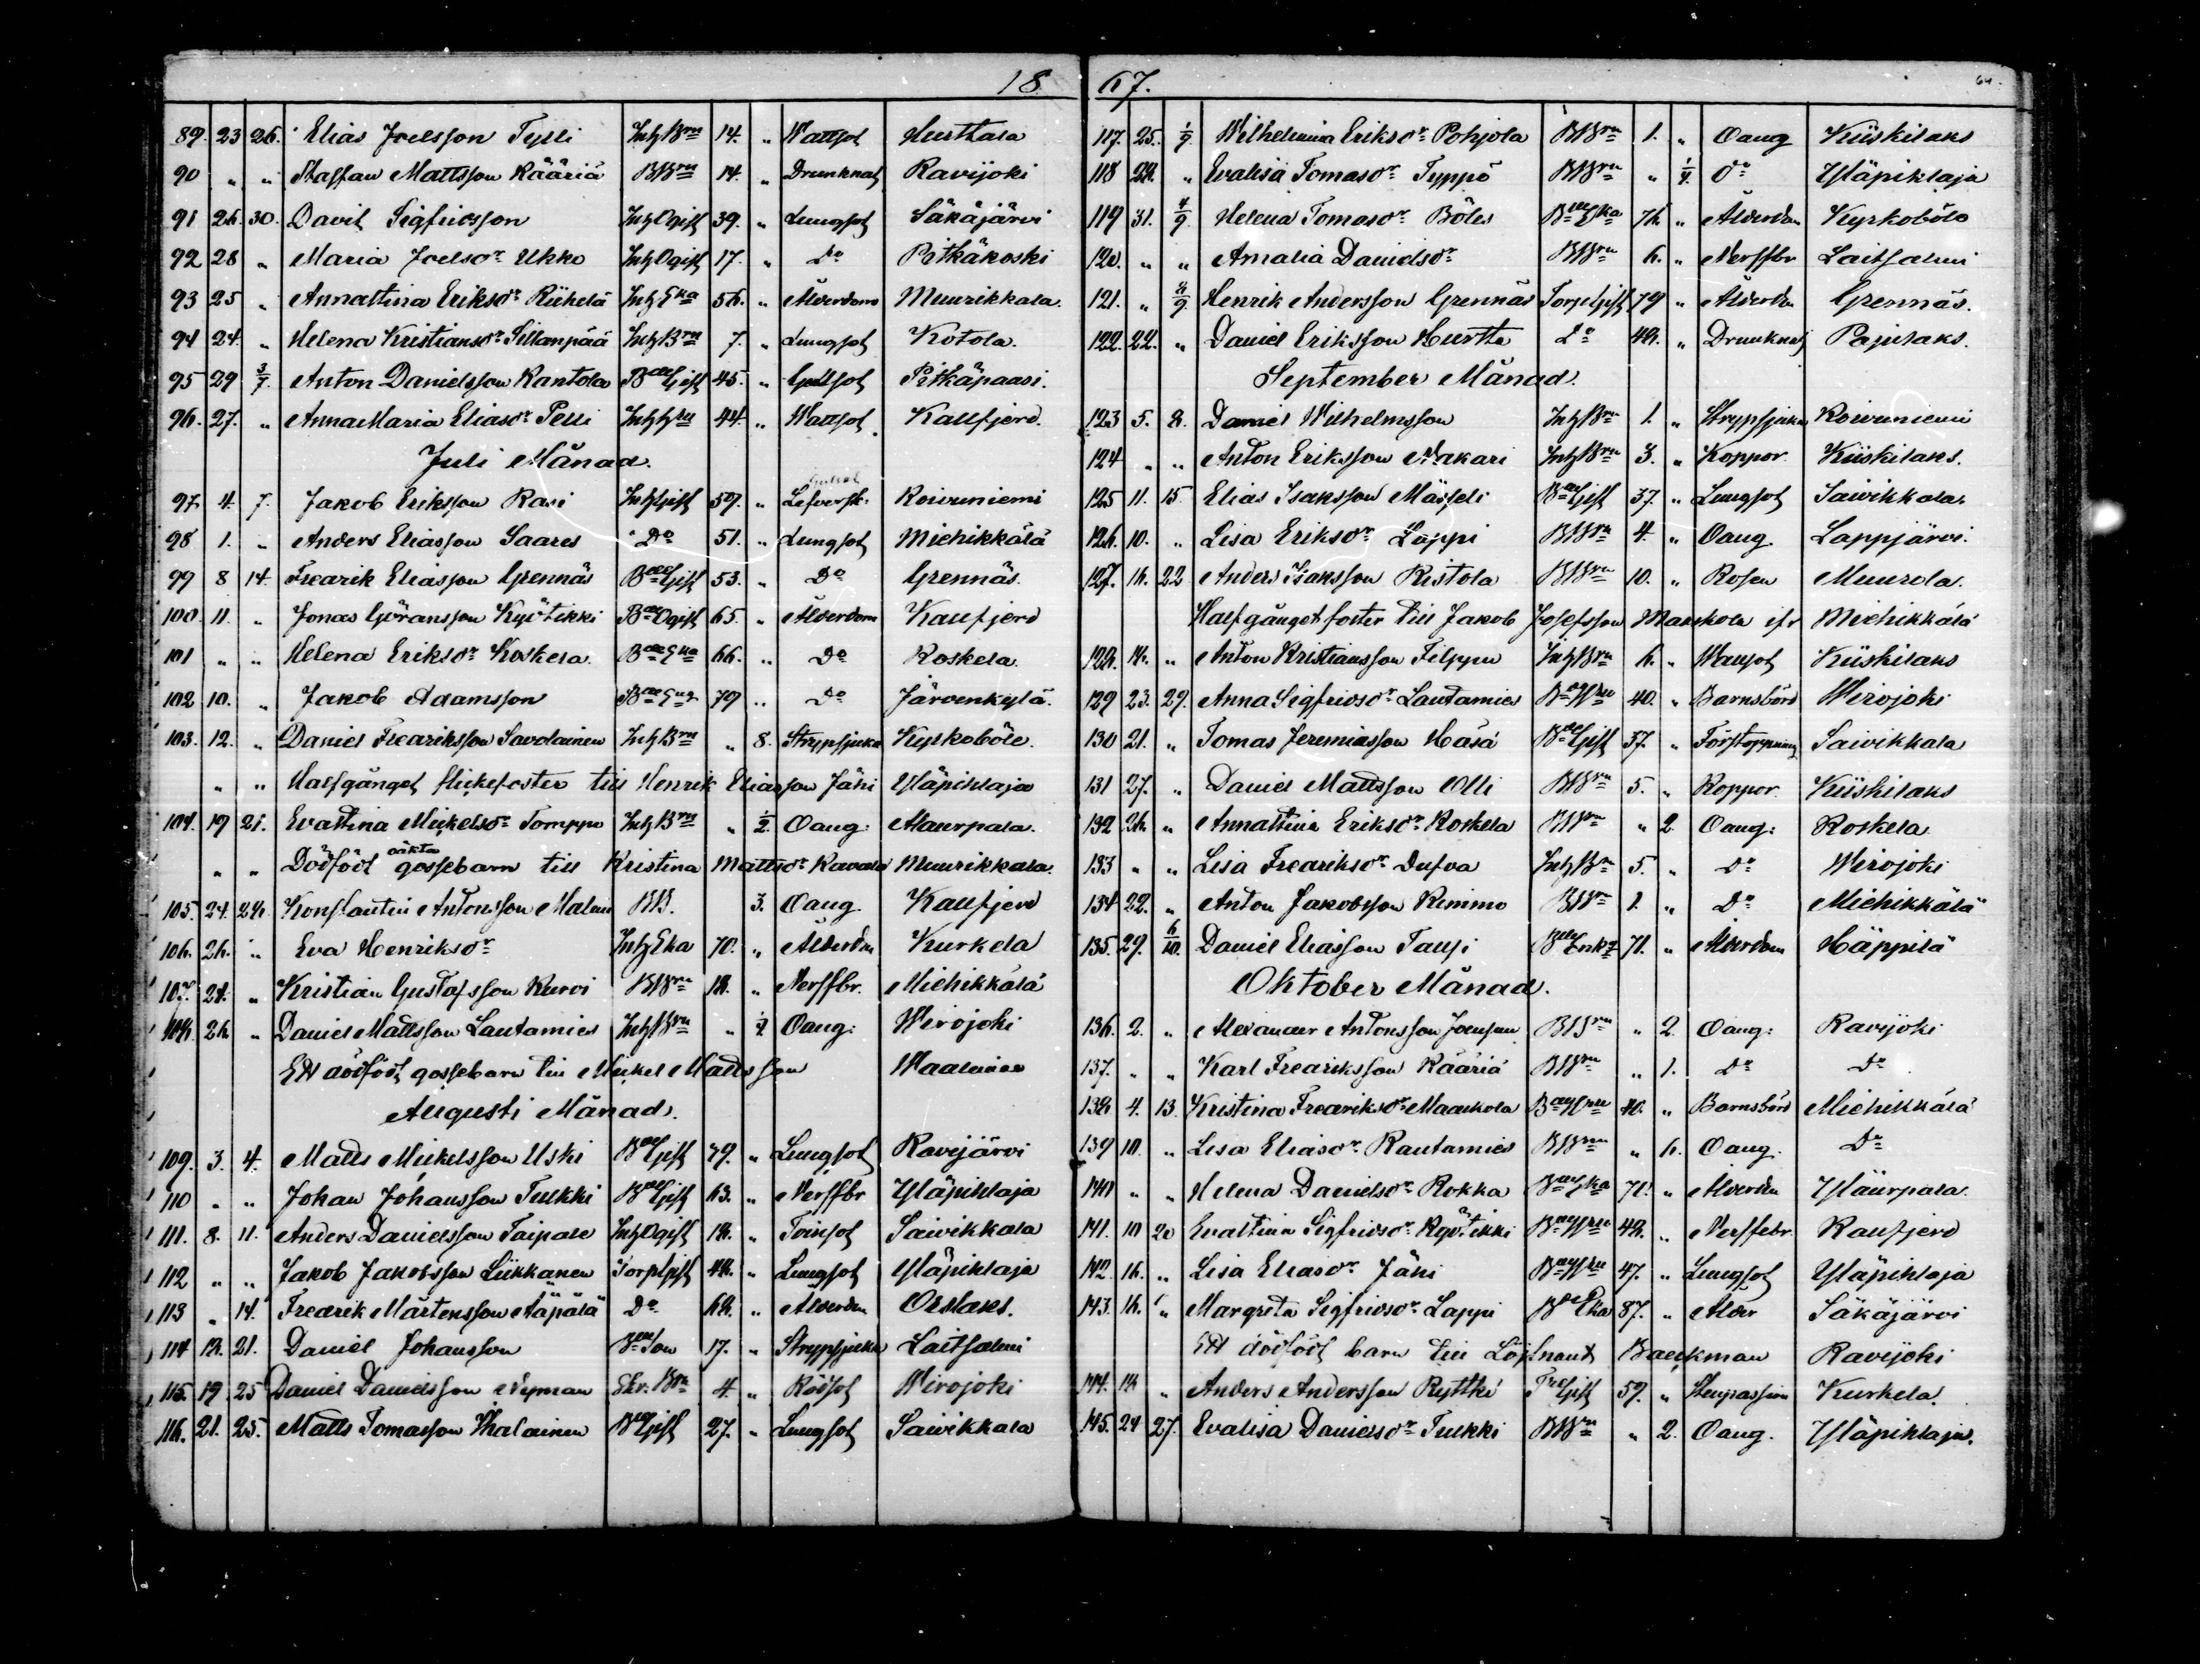 18 67.
64.
89. 23 26. Elias Joelsson Tylli Inh Brn 14. " Wattsot Hurttala
90 " " Staffan Mattsson Rääriä BBrn 14. " Drunknat Ravijoki
91 26. 30. Davit Sigfridsson Inh Ogift 39. " Lungsot Säkäjärvi
92 28 " Maria Joelsdr Ukko Inh Ogift 17. " Do Pitkäkoski
93 25 " Annastina Eriksdr Riihelä Inh Eka 56. " Ålderdom Muurikkala.
94 24. " Helena Kristiansdr Sillanpää Inh Brn 7. " Lungsot Kotola.
95 29 3/7. Anton Danielsson Kantola Bde Gift 45. " Gulsot Pitkäpaasi.
96. 27. " Anna Maria Eliasdr Pelli 44. " Wattsot Kallfjerd.
Juli Månad.
97 4. 7. Jakob Eriksson Rasi Inh Gift 59. " Lefverst: Koivuniemi
98 1. " Anders Eliasson Saares Do 51. " Lungsot Miehikkälä
99 8 14. Fredrik Eliasson Grennäs Bde Gift 53. " Do Grennäs.
100. 11. " Jonas Göransson Kyötikki Bde Ogift 65. " Ålderdom Kallfjerd
101 " " Helena Eriksdr Koskela Bde Eka 66. " Do Koskela
102 10. " Jakob Adamsson 79 " Do Järvenkylä.
103. 12. " Daniel Fredriksson Savolainen Inh Brn " 8. Strypsjuka Kyrkoböle.
" " Halfgånget flickefoster till Henrik Eliasson Jähi Yläpihlaja
104. 19 21. Evastina Mickelsdr Tomppo Inh Brn " 1/2. Oäng: Alaurpala.
" " Dödfödt oäkta gossebarn till Kristina Mattsdr Kavala Muurikkala.
105. 24. 28. Konstantin Antonsson Malin BB. 3. Oäng. Kallfjerd
106. 26. " Eva Henriksdr Inh Eka 70. " Ålderdm Kurkela
107. 24. " Kristian Gustafsson Kurvi BBrn 18. " Nerffbr. Miehikkälä
108. 26. " Daniel Mattsson Lautamies Inh Brn " 1/4 Oäng: Wirojoki
Ett dödfödt gossebarn till Mickel Mattsson Waalimaa
Augusti Månad.
109. 3. 4. Matts Mickelsson Uski Bde Gift 39. " Lungsot Ravijärvi
110 " " Johan Johansson Tulkki Bde Gift 63. " Nerffbr Yläpihlaja
111. 8. 11. Anders Danielsson Taipale Inh Ogift 18. " Tvinsot Saivikkala
112 " " Jakob Jakobsson Liikkanen Torp Gift 48. " Lungsot Yläpihlaja
113 " 14. Fredrik Mårtensson Äijälä Do 68. " Ålderdm Orslaks.
114 18. 21. Daniel Johansson Bde Son 17. " Strypsjuka Laitsalmi
115. 19 25 Daniel Danielsson Nyman Skr. Brn 4. " Rödsot Wirojoki
116. 21. 25. Matts Tomasson Ihalainen Bde Gift 27. " Lungsot Saivikkala
117. 25. 1/9. Wilhelmina Eriksdr Pohjola BBrn 1. " Oäng Kiiskilaks
118 28. " Evalisa Tomasdr Typpö BBrn " 1/4. Do Yläpihlaja
119 31. 4/9. Helena Tomasdr Böles Bde Eka 76. " Ålderdom Kyrkoböle
120. " " Amalia Danielsdr BBrn 6. " Nerffbr Laitsalmi
121. " 8/9. Henrik Andersson Grennäs Torp Gift 79 " Ålderdm Grennäs.
122. 22. " Daniel Eriksson Hurtta Do 48. " Drunknat Pajulaks.
September Månad.
123 5. 8. Daniel Wilhelmsson Inh Brn 1. " Strypsjuka Koivuniemi
124 " " Anton Eriksson Nakari Inh Brn 3. " Koppor Kiiskilaks.
125 11. 15. Elias Isaksson Mässeli Bde Gift 37. " Lungsot Saivikkala.
126. 10. " Lisa Eriksdr Lappi BBrn 4. " Oäng. Lappjärvi.
127. 16. 22 Anders Isaksson Ristola BBrn 10. " Rosen Muurola.
Halfgånget foster till Jakob Josefsson Maukola ifr Miehikkälä
128. 14. " Anton Kristiansson Filppu Inh Brn 6. " Wattsot Kiiskilaks
129 23. 29. Anna Sigfridsdr Lautamies 40. " Barnsbörd Wirojoki
130 21. " Tomas Jeremiasson Häsä Bde Gift 37. " Förstoppning Saivikkala
131 27. " Daniel Mattsson Olli BBrn 5. " Koppor Kiiskilaks
132 26. " Annastina Eriksdr Koskela BBrn " 2 Oäng: Koskela.
133 " " Lisa Fredriksdr Dufva Inh Brn 5. " Do Wirojoki
134 22. " Anton Jakobsson Kimmo BBrn 1. " Do Miehikkälä
135. 29. 6/10. Daniel Eliasson Taussi Bde Enkl 71. " Ålderdom Häppilä
Oktober Månad.
136. 2. " Alexander Antonsson Joensuu BBrn " 2. Oäng: Ravijoki
137. " " Karl Fredriksson Rääriä BBrn " 1. Do Do
138 4. 13. Kristina Fredriksdr Maaukola 40. " Barnsbörd Miehikkälä
139 10. " Lisa Eliasdr Rautamies BBrn " 6. Oäng. Do
140 " " Helena Danielsdr Rokka Bde Eka 71. " Ålderdm Yläurpala.
141. 10 20 Evastina Sigfridsdr Kyötikki 48. " Nerffebr. Kallfjerd
142. 16. " Lisa Eliasdr Jähi 47. " Lungsot Yläpihlaja
143. 16. " Margreta Sigfridsdr Lappi Bde Eka 87. " Ålder Säkäjärvi
Ett dödfödt barn till Löjtnant Backman Ravijoki
144. 18 " Anders Andersson Ryttki Gift 59. " Stenpassion Kurkela.
145. 24 27. Evalisa Danielsdr Tulkki BBrn " 2. Oäng. Yläpihlaja.